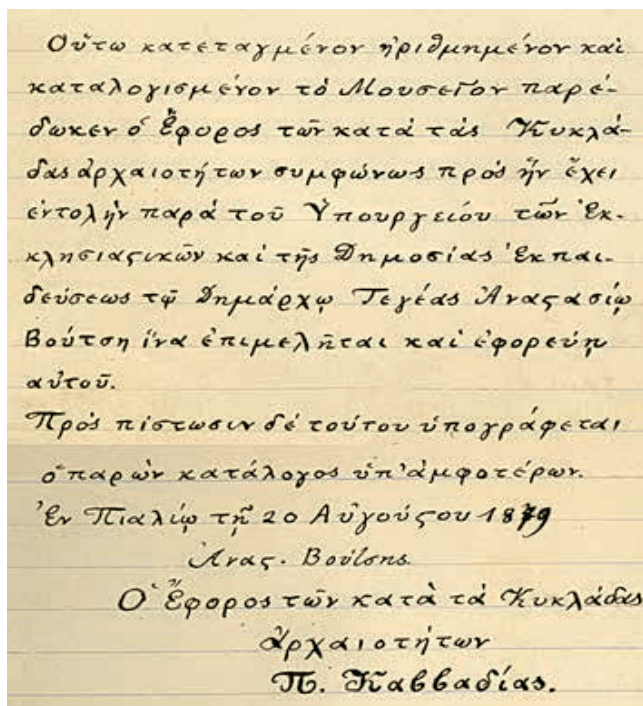 Οὕτω κατεταγμένον ἠριθμημένον καὶ
καταλογισμένον τὸ Μουσεῖον παρέ-
δωκεν ὁ Ἔφορος τῶν κατὰ τάς Κυκλά-
δας ἀρχαιοτήτων συμφώνως πρὸς ἥν ἔχει
ἐντολὴν παρὰ τοῦ Ὑπουργείου τῶν Ἐκ-
κλησιαϛικῶν καὶ τῆς Δημοσίας Ἐκπαι-
δεύσεως τῷ Δημάρχῳ Τεγέας Ἀναϛασίῳ
Βούτση ἵνα ἐπιμελῆται καὶ ἐφορεύῃ
αὐτοῦ.
Πρὸς πίστωσιν δέ τούτου ὑπογράφεται
ὁ παρὼν κατάλογος ὑπ' ἀμφοτέρων.
Ἐν Πιαλίῳ τῇ 20 Αὐγούϛου 1879
Ἀναϛ. Βούτσης
Ὁ Ἔφορος τῶν κατὰ τά Κυκλάδας
ἀρχαιοτήτων
Π. Καββαδίας.